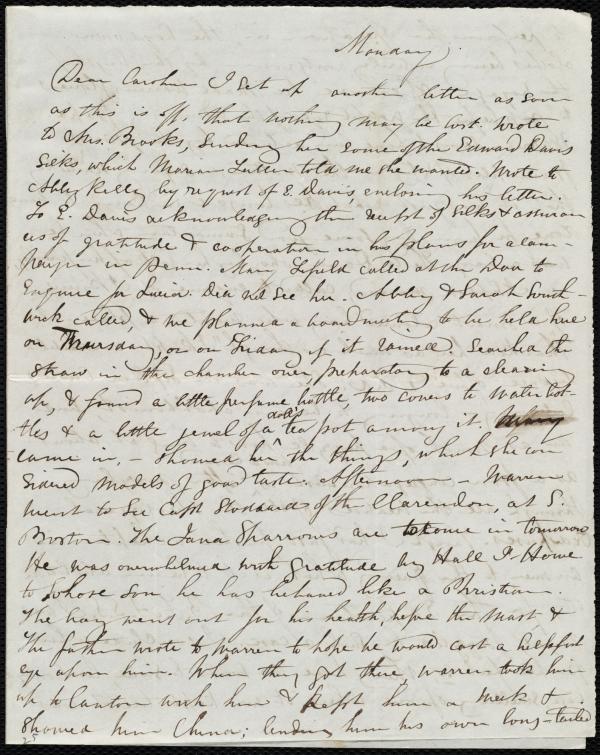 Monday.
Dear Caroline I set up another letter as soon
as this is off, that nothing may be lost. Wrote
to Mrs. Brooks, sending her some of the Edward Davis
silks, which Maria told me she wanted. Wrote to
Abby Kelly by request of E. Davis, enclosing his letter.
To E. Davis acknowledging the receipt of silks & assuran
ces of gratitude & cooperation in his plans for a cam-
paign in Penn. Mary called at the Door to
Enquire for Lucia. Did not see her. Abby & Sarah South-
wick called, & we planned a board meeting to be held here
on Thursday, or on Friday if it rained. Searched the
Straw in the chamber over, preparatory to a clearing
up, & found a little perfume bottle, two covers to water bot-
tles & a little jewel of a doll's tea pot among it. Mary
came in, – showed her the things, which she con
sidered models of good taste. Afternoon – Warren
went to see Capt of the Clarendon, at S.
Boston. The Java Sparrows are to come in tomorrow
He was overwhelmed with gratitude by Hall J. Howe
to whose son he has behaved like a Christian.
The boy went out for his health, before the mast &
the father wrote to Warren to hope he would cast a helpful
eye upon him. When they got there, Warren took him
up to Canton with him & kept him a week &
showed him China; lending him his own long-tailed